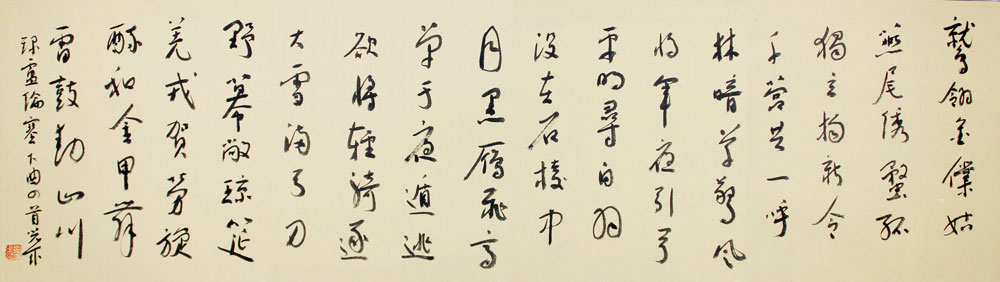 鷲翎金僕姑
燕尾繡蝥弧
獨立揚新令
千營共一呼
林暗草驚風
將軍夜引弓
平明尋白羽
没在石棱中
月黑鴈飛高
單于夜遁逃
欲將輕騎逐
大雪滿弓刀
野幕敞瓊筵
羌戎賀勞旋
醉和金甲舞
雷鼓動山川
録盧倫塞下曲四首